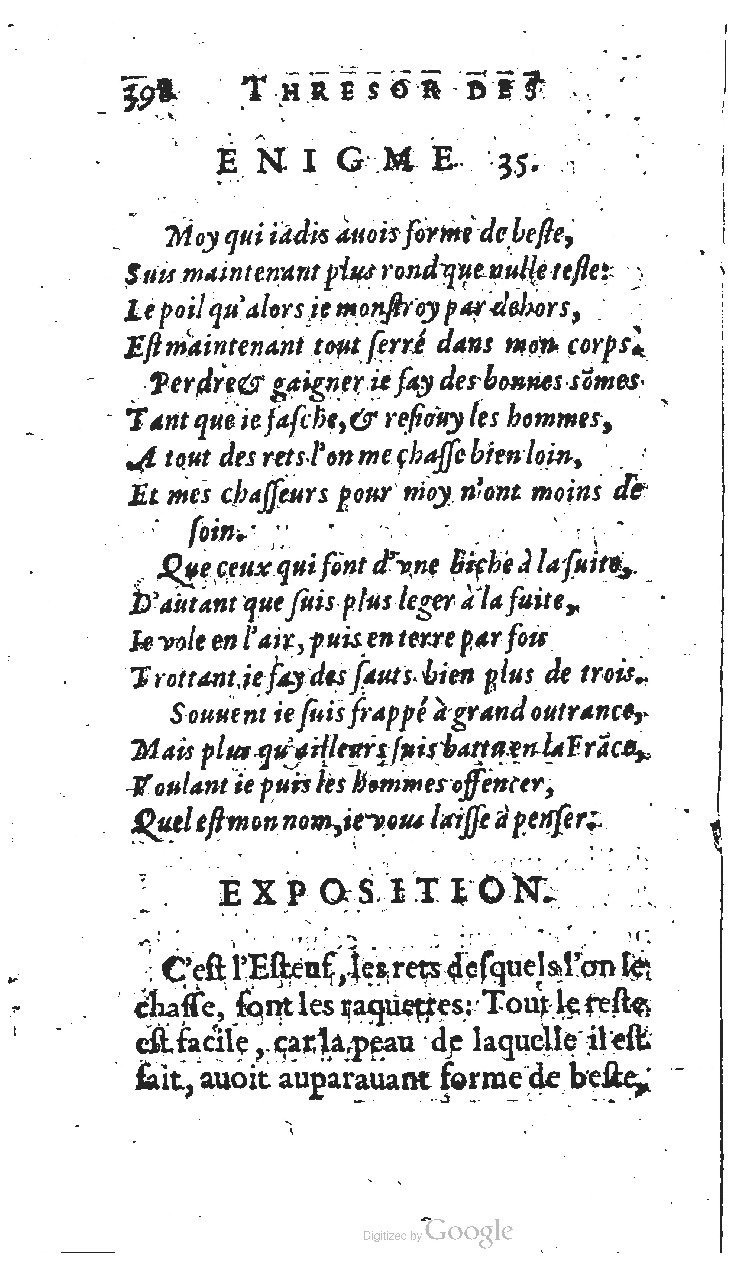 398 THRESOR DES
ENIGME 35.
Moy qui iadis auois forme de beste,
Suis maintenant plus rond que nulle teste:
Le poil qu'alors ie monstroy par dehors,
Est maintenant tout serré dans mon corps.
Perdre & gaigner ie fay des bonnes sōmes
Tant que ie fasche, & resiouy les hommes,
A tout des rets l'on me chasse bien loin,
Et mes chasseurs pour moy n'ont moins de
soin.
Que ceux qui sont d'vne Biche à la suite,
D'autant que suis plus leger à la fuite,
Ie vole en l'air, puis en terre par fois
Trottant ie fay des sauts bien plus de trois.
Souuent ie suis frappé à grand outrance,
Mais plus qu'ailleurs suis battu en la Frāce,
Voulant ie puis les hommes offencer,
Quel est mon nom, ie vous laisse à penser.
EXPOSITION.
C'est l'Esteuf, les rets desquels l'on le
chasse, sont les raquettes: Tout le reste
est facile, car la peau de laquelle il est
fait, auoit auparauant forme de beste,
Digitized by Google